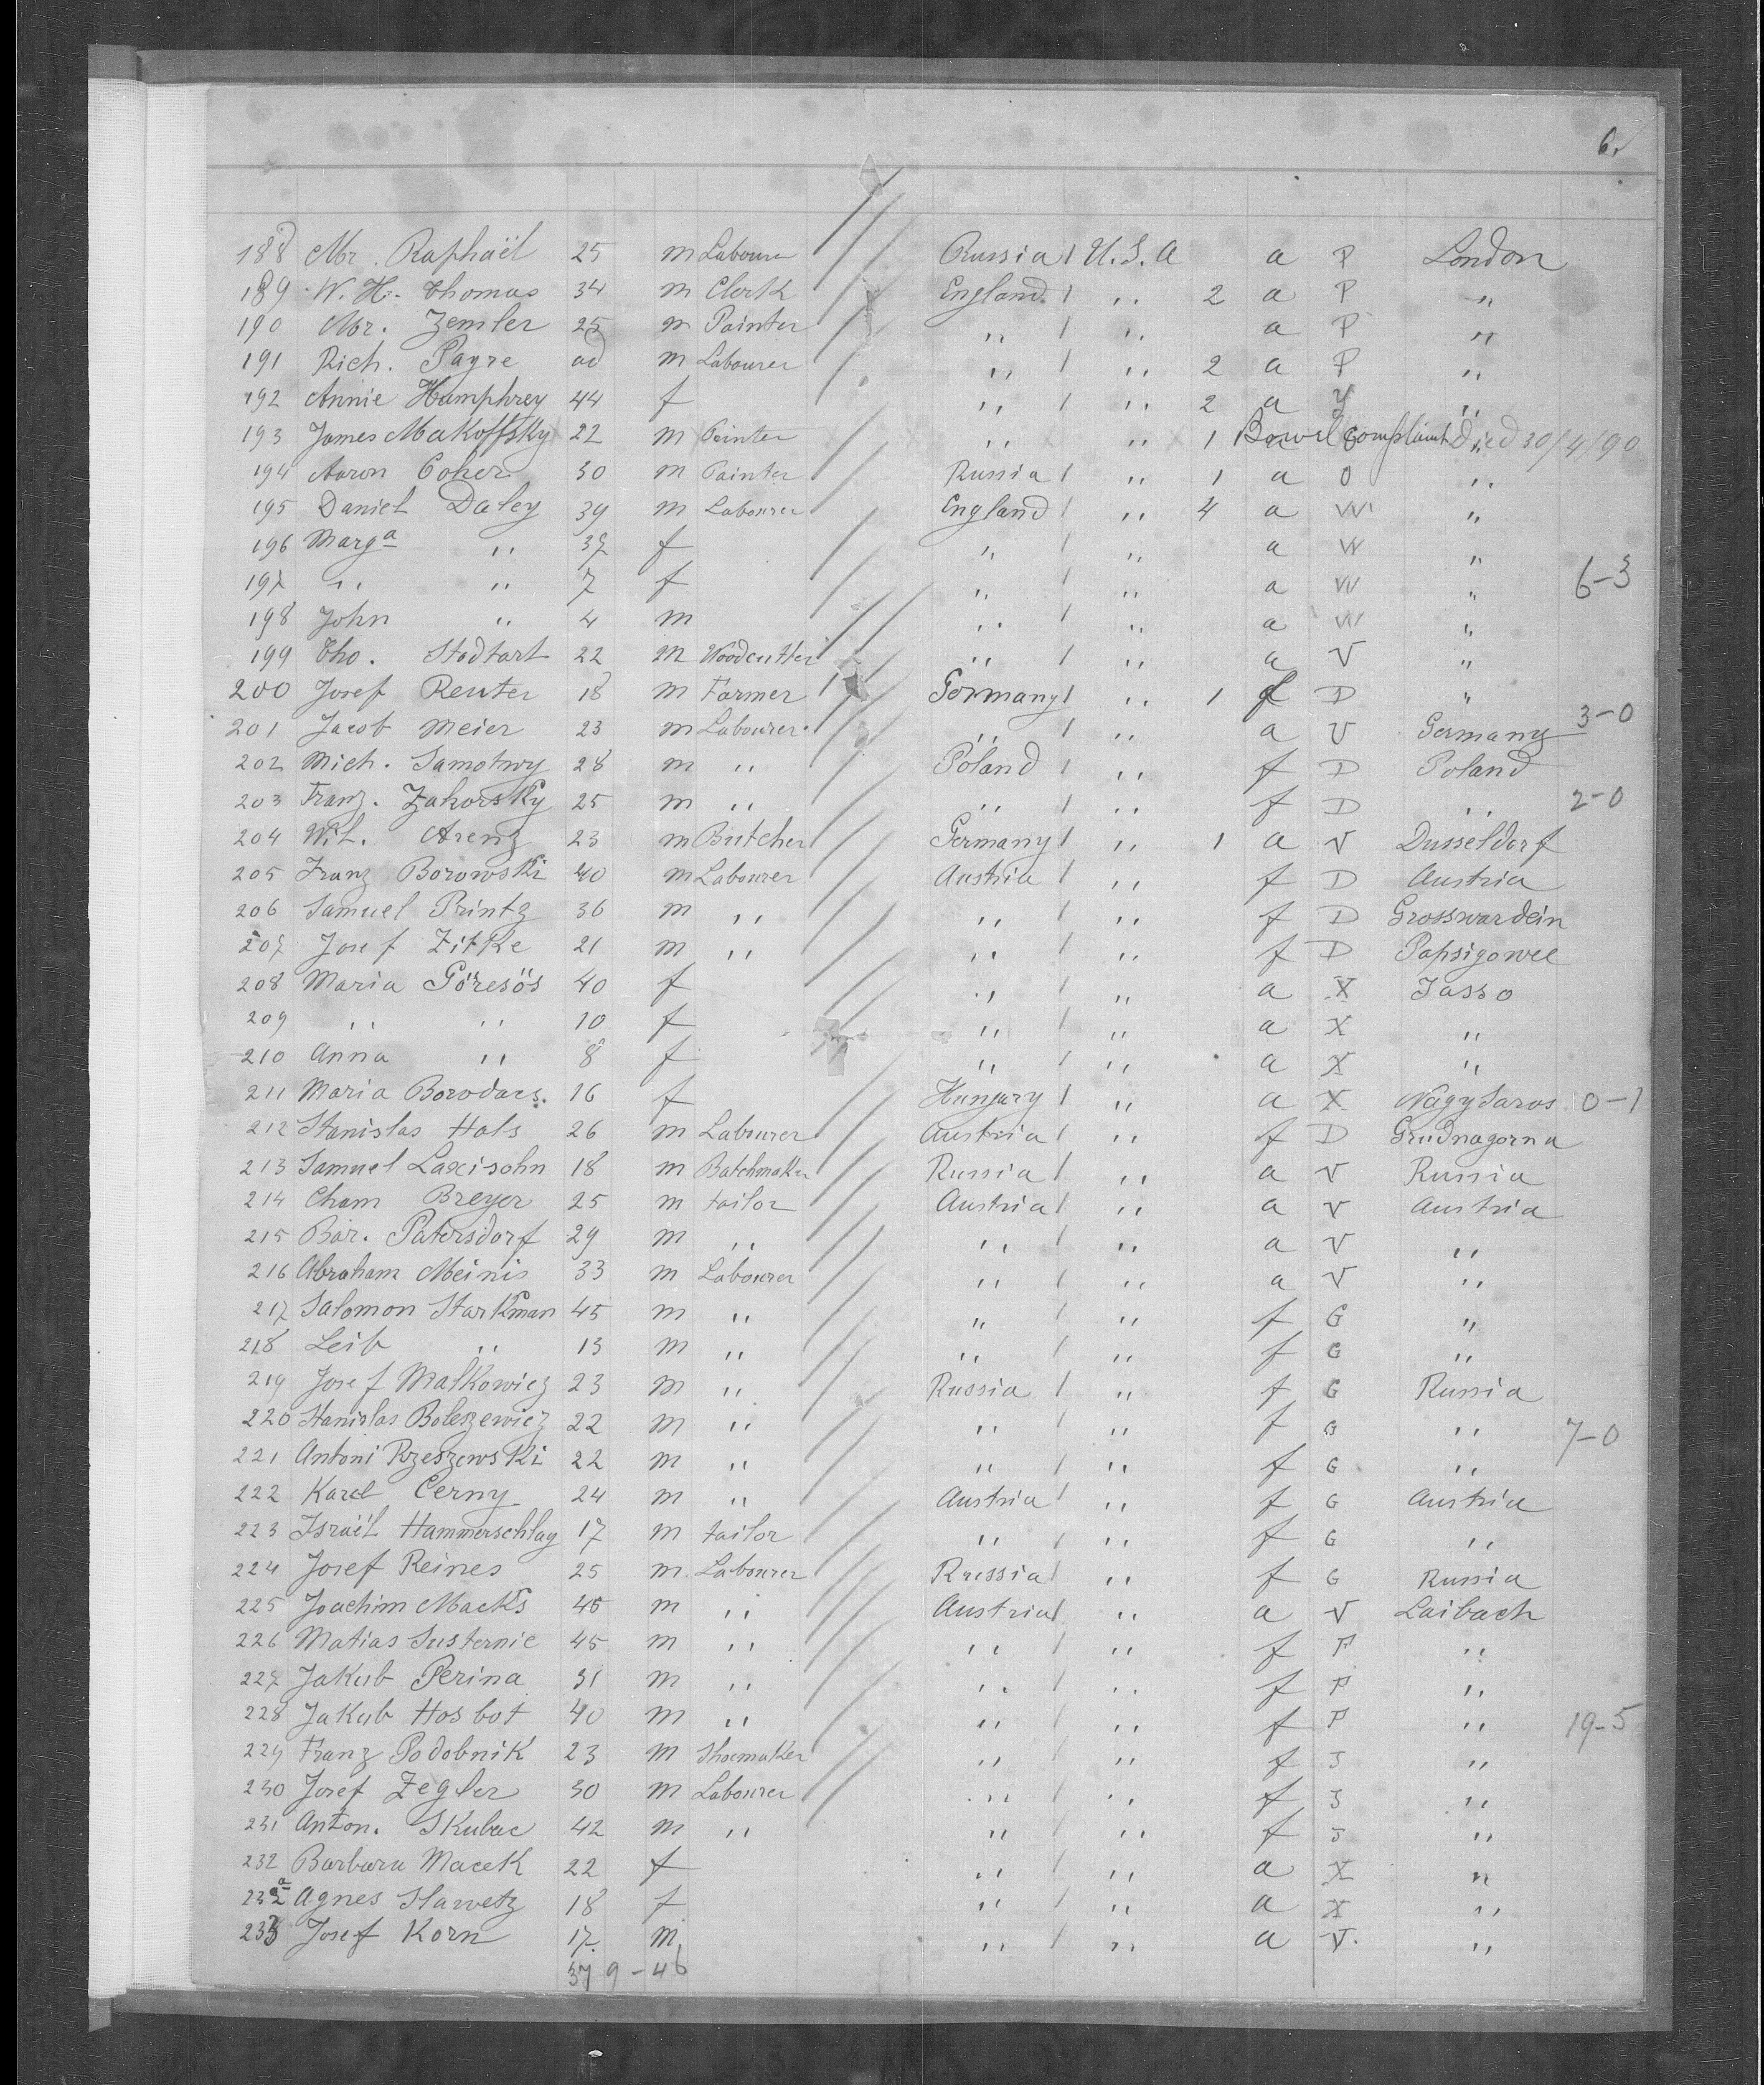 6.
188 Mr. Raphaël 25 m Labourer Russia / U.S.A a P London
189 W. H. Thomas 34 m Clerk England / ,, 2 a P ,,
190 Mr. Zemler 25 m Painter ,, / ,, a P ,,
191 Rich. Payre ad m Labourer ,, / ,, 2 a P ,,
192 Annie Humphrey 44 f ,, / ,, 2 a Y ,,
193 James Makoffsky 22 m Painter ,, ,, 1 Bowel Complaint died 30/4/90
194 Aaron Coher 30 m Painter Russia / ,, 1 a O ,,
195 Daniel Daley 39 m Labourer England / ,, 4 a W ,,
196 Marga ,, 37 f ,, / ,, a W ,,
197 ,, ,, 7 f ,, / ,, a W ,, 6-3
198 John ,, 4 m ,, / ,, a W ,,
199 Tho. Stodtart 22 m Woodcutter ,, / ,, a V ,,
200 Josef Reuter 18 m Farmer Germany / ,, 1 f D ,,
201 Jacob Meier 23 m Labourer ,, / ,, a V Germany 3-0
202 Mich. Samotwy 28 m ,, Poland / ,, f D Poland
203 Franz. Zakorsky 25 m ,, ,, / ,, f D ,, 2-0
204 Wil. Arenz 23 m Butcher Germany / ,, 1 a V Dusseldorf
205 Franz Borowski 40 m Labourer Austria / ,, f D Austria
206 Samuel Printz 36 m ,, ,, / ,, f D Grosswardein
207 Josef Zitke 21 m ,, ,, / ,, f D Papsigowee
208 Maria Göresös 40 f ,, / ,, a X Jasso
209 ,, ,, 10 f ,, / ,, a X ,,
210 Anna ,, 8 f ,, / ,, a X ,,
211 Maria Borodacs. 16 f Hungary / ,, a X Nagy Saros 0-1
212 Stanislas Hals 26 m Labourer Austria / ,, f D Grudnagorna
213 Samuel Laxisohn 18 m Batchmaker Russia / ,, a V Russia
214 Cham Breyer 25 m tailor Austria / ,, a V Austria
215 Bar. Patersdorf 29 m ,, ,, / ,, a V ,,
216 Abraham Meinis 33 m Labourer ,, / ,, a V ,,
217 Salomon Starkman 45 m ,, ,, / ,, f G ,,
218 Leib ,, 13 m ,, ,, / ,, f G ,,
219 Josef Malkowicz 23 m ,, Russia / ,, f G Russia
220 Stanislas Boleszewicz 22 m ,, ,, / ,, f G ,, 7-0
221 Antoni Rzeszewski 22 m ,, ,, / ,, f G ,,
222 Karel Cerny 24 m ,, Austria / ,, f G Austria
223 Israël Hammerschlag 17 m tailor ,, / ,, f G ,,
224 Josef Reines 25 m Labourer Russia / ,, f G Russia
225 Joachim Macks 45 m ,, Austria / ,, a V Laibach
226 Matias Susternic 45 m ,, ,, / ,, f P ,,
227 Jakub Perina 31 m ,, ,, / ,, f P ,,
228 Jakub Hosbot 40 m ,, ,, / ,, f P ,, 19-5
229 Franz Podobnik 23 m Shoemaker ,, / ,, f J ,,
230 Josef Zegler 30 m Labourer ,, / ,, f J ,,
231 Anton. Skubac 42 m ,, ,, / ,, f J ,,
232 Barbara Macek 22 f ,, / ,, a X ,,
232a Agnes Slawetz 18 f ,, / ,, a X ,,
233 Josef Korn 17 m ,, / ,, a V. ,,
37 9-46